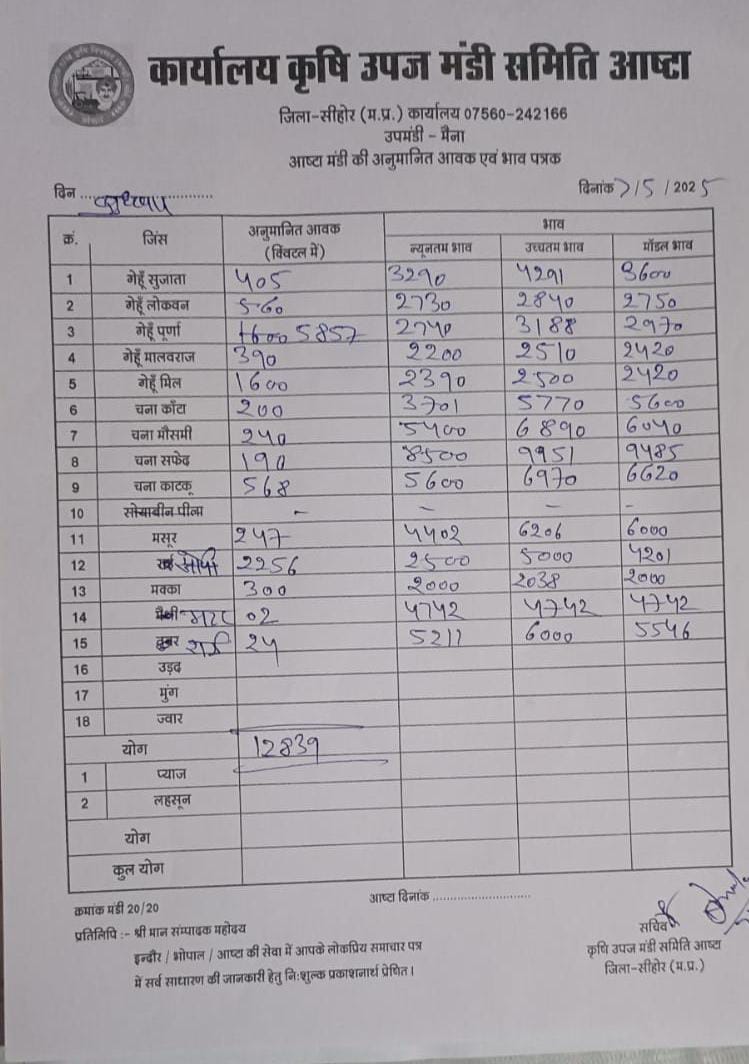 कार्यालय कृषि उपज मंडी समिति आष्टा
जिला-सीहोर (म.प्र.) कार्यालय 07560-242166
उपमंडी - मैना
आष्टा मंडी की अनुमानित आवक एवं भाव पत्रक
दिन .... बुधवार .... दिनांक 7/5/2025
क्रं. जिंस अनुमानित आवक (क्विंटल में) भाव
न्यूनतम भाव उच्चतम भाव मॉडल भाव
1 गेहूँ सुजाता 405 3290 4291 3600
2 गेहूँ लोकवन 560 2730 2840 2750
3 गेहूँ पूर्णा 5857 2740 3188 2970
4 गेहूँ मालवराज 390 2200 2510 2420
5 गेहूँ मिल 1600 2390 2500 2420
6 चना काँटा 200 3701 5770 5600
7 चना मौसमी 240 5400 6890 6040
8 चना सफेद 190 8500 9951 9485
9 चना काटकू 568 5600 6970 6620
10 सोयाबीन पीला - - - -
11 मसूर 247 4402 6206 6000
12 2256 2500 5000 4201
13 मक्का 300 2000 2038 2000
14 02 4742 4742 4742
15 24 5211 6000 5546
16 उड़द
17 मुंग
18 ज्वार
योग 12839
1 प्याज
2 लहसून
योग
कुल योग
क्रमांक मंडी 20/20 आष्टा दिनांक ..............................
प्रतिलिपि :- श्री मान सम्पादक महोदय
इन्दौर / भोपाल / आष्टा की सेवा में आपके लोकप्रिय समाचार पत्र
में सर्व साधारण की जानकारी हेतु नि:शुल्क प्रकाशनार्थ प्रेषित।
सचिव
कृषि उपज मंडी समिति आष्टा
जिला-सीहोर (म.प्र.)